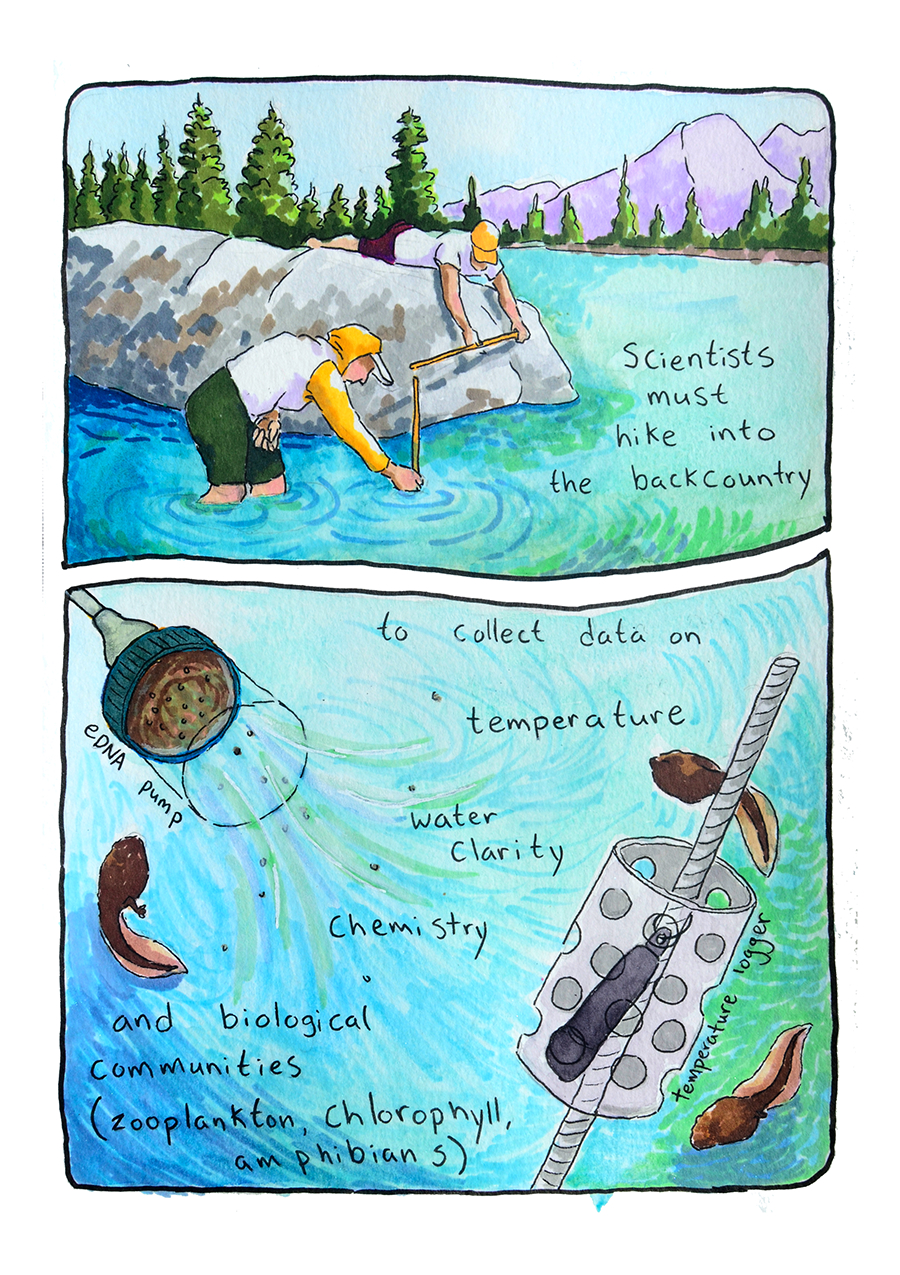 Scientists
must
hike into
the backcountry
to collect data on
temperature
eDNA pump
water
clarity
chemistry
temperature logger
and biological
communities
(zooplankton, chlorophyll,
amphibians)